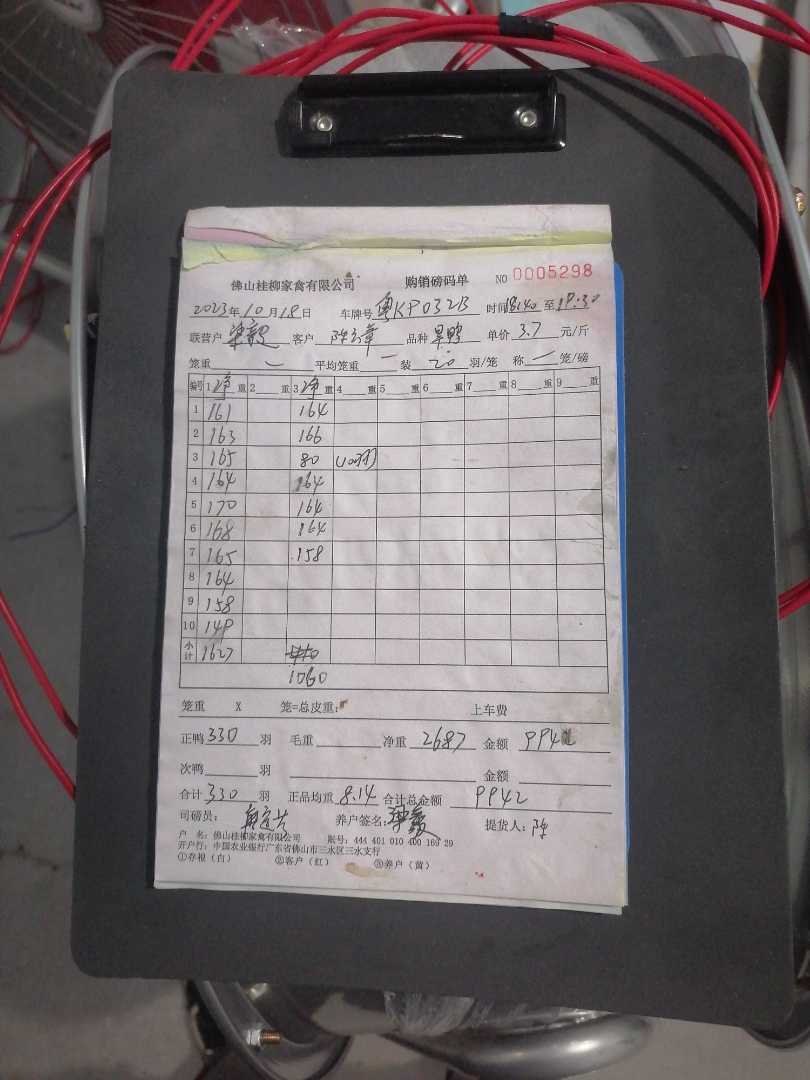 佛山桂柳家禽有限公司 购销磅码单 NO 0005298
2023年10月18日 车牌号 粤KP032B 时间 至
联营户 客户 品种 单价 3.7 元/斤
笼重 一 平均笼重 一 装 20 羽/笼 称 一 笼/磅
编号 1 净 重 2 重 3 净 重 4 重 5 重 6 重 7 重 8 重 9 重
1 161 164
2 163 166
3 165 80 (10羽)
4 164 164
5 170 164
6 168 164
7 165 158
8 164
9 158
10 149
小计 1627
1060
笼重 X 笼=总皮重: 上车费
正鸭 330 羽 毛重 净重 2687 金额 9942
次鸭 羽 金额
合计 330 羽 正品均重 8.14 合计总金额 9942
司磅员: 养户签名: 提货人: 陈
户 名: 佛山桂柳家禽有限公司 账号: 444 401 010 400 169 29
开户行: 中国农业银行广东省佛山市三水区三水支行
①存根(白) ②客户(红) ③养户(黄)